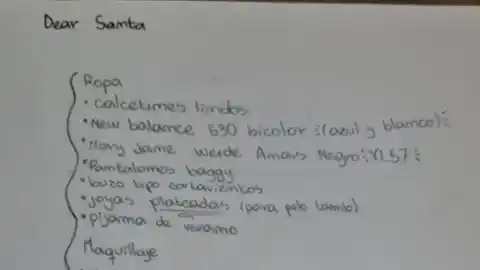 Dear Santa
Ropa
• calcetines lindos
• New balance 530 bicolor (azul y blanco)
• Mary Jane Negro
• Pantalones baggy
• buzo tipo cortavientos
• joyas plateadas (para pelo también)
• pijama de verano
Maquillaje